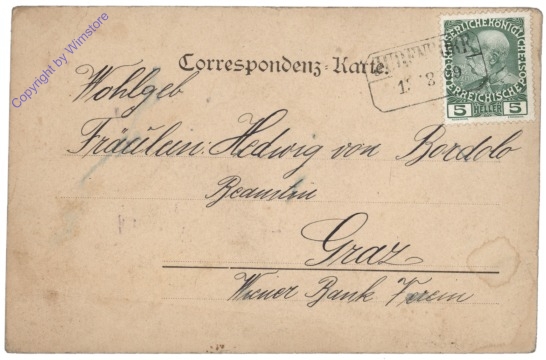 Copyright by Wimstore
Correspondenz-Karte.
KAISERLICHE KÖNIGLICHE ÖSTERREICHISCHE
5 HELLER 5
Wohlgeb
Fräulein: Hedwig von Bordolo
Beamtin
Graz
Wiener Bank Verein